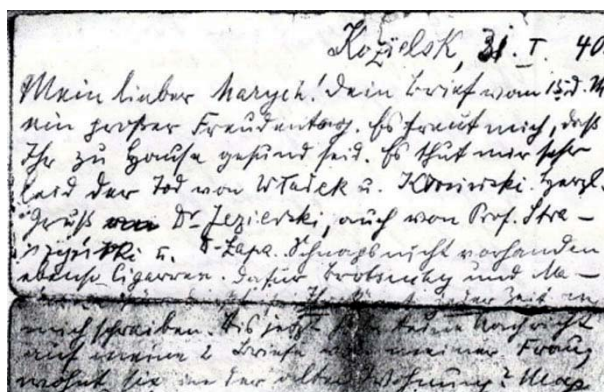 Kozielsk, 31. I. 40.
Mein lieber Marych! Dein Brief vom 15. d. M
ein großer Freudentag. Es freut mich, daß
Ihr zu Hause gesund seid. Es thut mir sehr
leid der Tod von Władek u. Herzl.
Gruß Dr Jezierski, auch von Prof. Stra-
szyński u. Dr Zapa. Schnaps nicht vorhanden
ebenso Cigarren. Dafür und Ma-
jeder Zeit an
mich schreiben. Bis jetzt keine Nachricht
auf meine 2 Briefe von meiner Frau,
wohnt sie in der alten Wohnung? Was